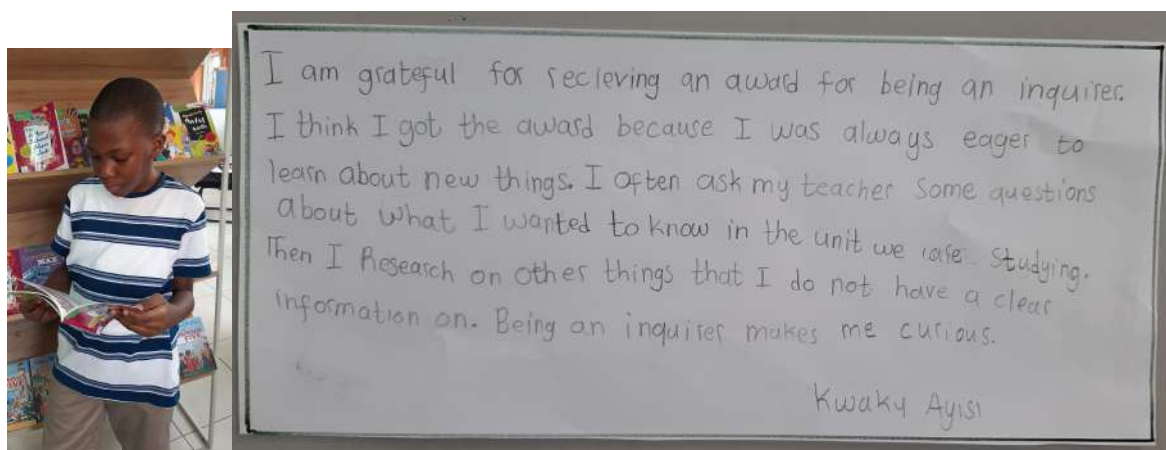 I am grateful for recieving an award for being an inquirer.
I think I got the award because I was always eager to
learn about new things. I often ask my teacher some questions
about what I wanted to know in the unit we are studying.
Then I Research on other things that I do not have a clear
information on. Being an inquirer makes me curious.
Kwaky Ayisi